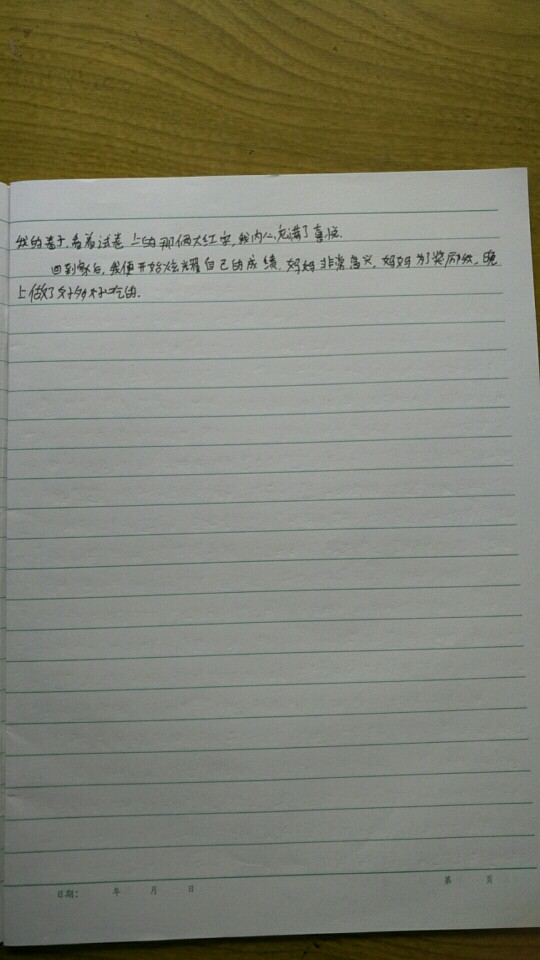 我的卷子,看着试卷上的那俩大红字,我内心充满了喜悦.
回到家后,我便开始炫耀自己的成绩,妈妈非常高兴,妈妈为了奖励我,晚
上做了好多好吃的.
日期: 年 月 日 第 页